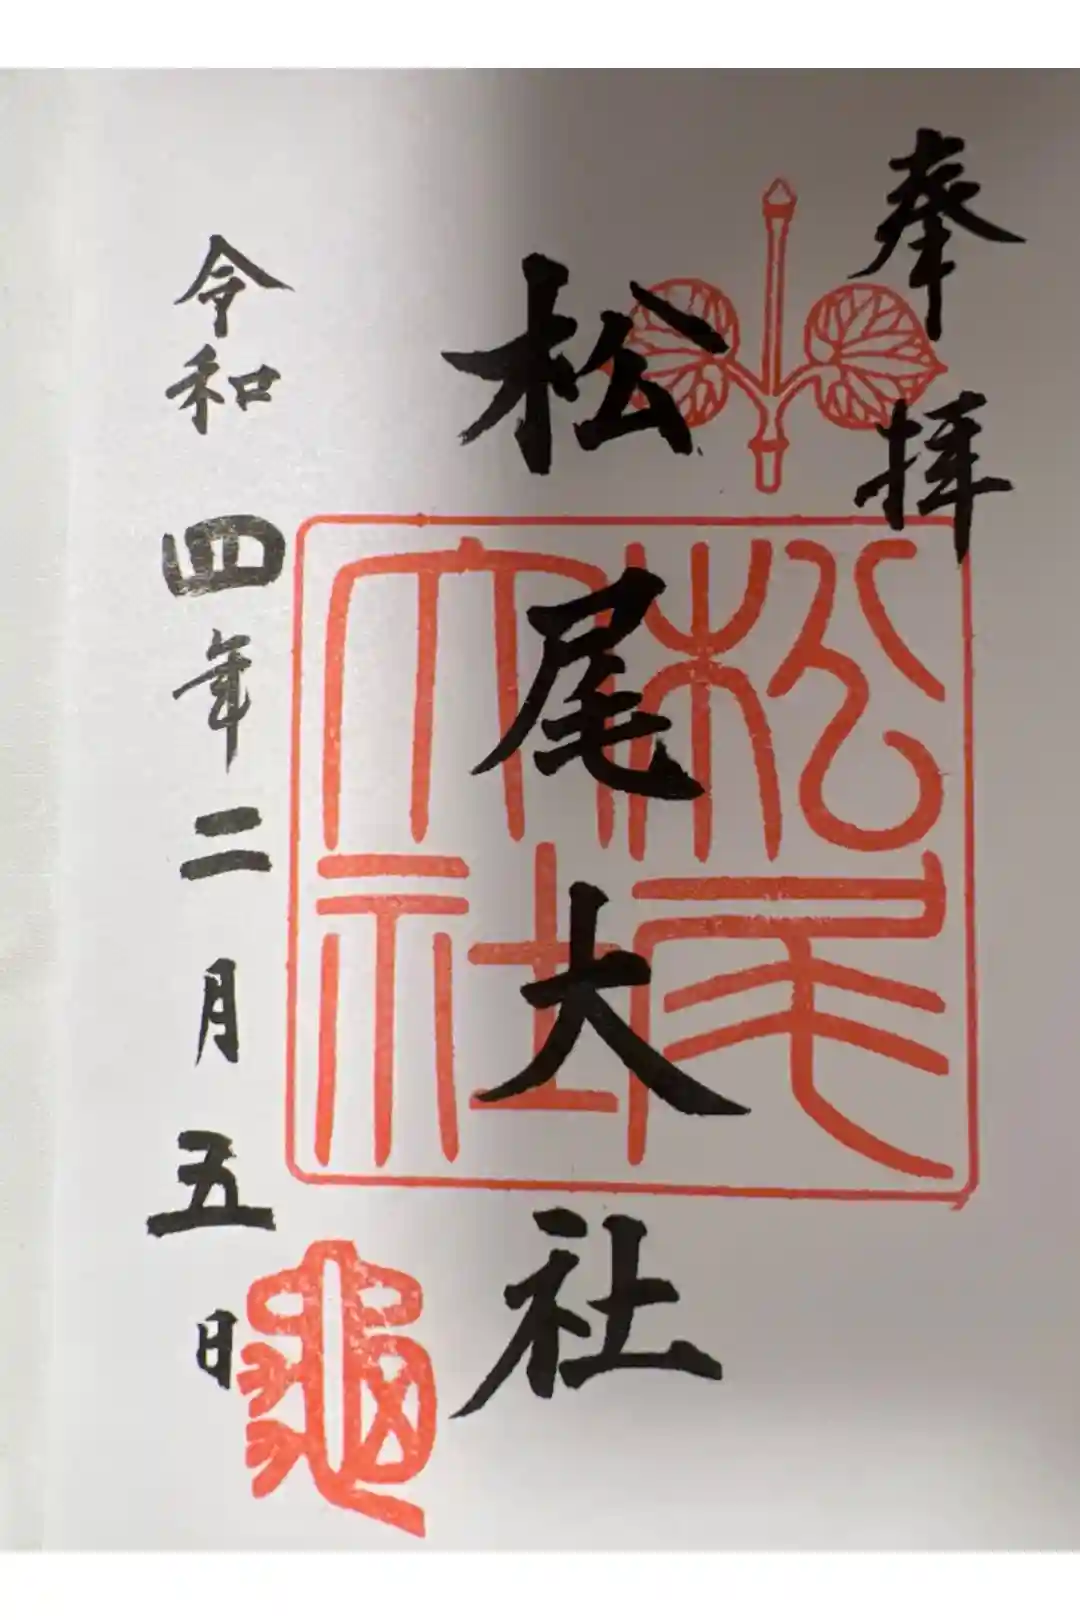 奉拝
松尾大社
松尾大社
令和四年二月五日
龜